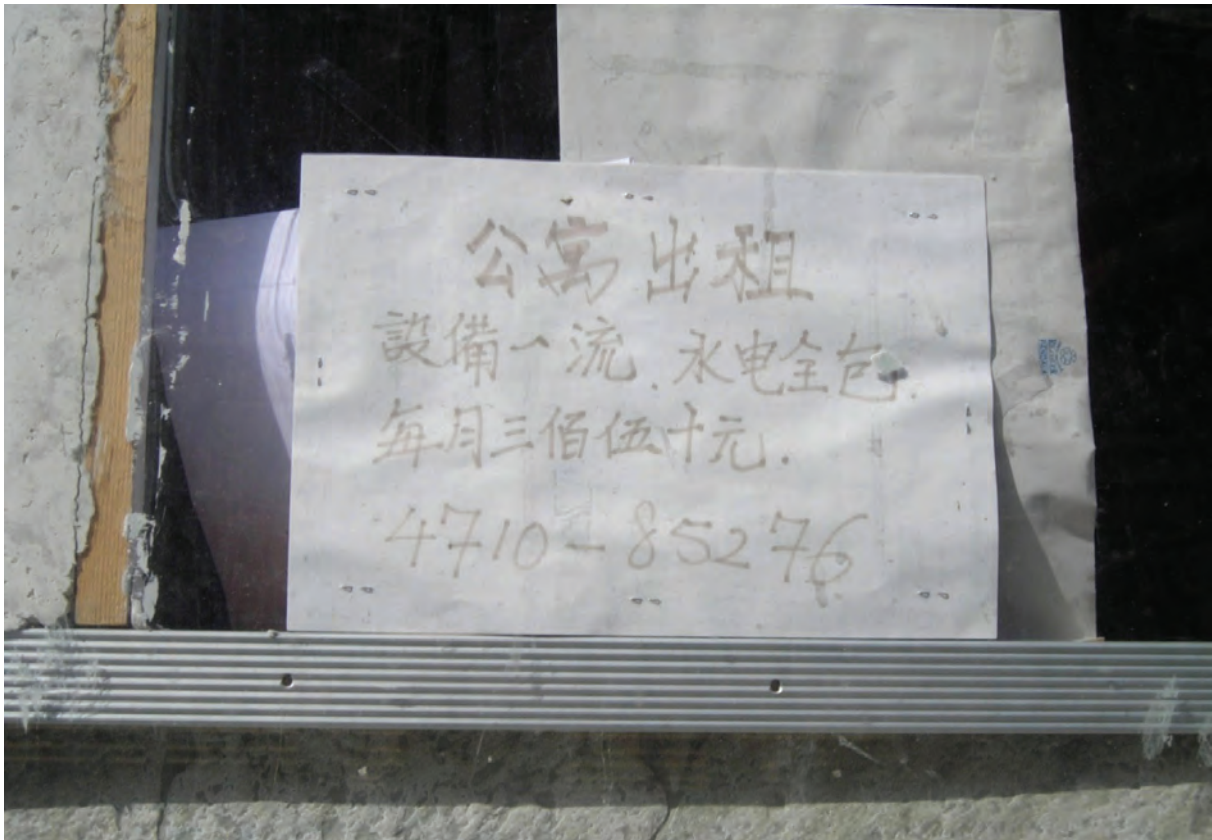 公寓出租
設備一流.水电全包.
每月三佰伍十元.
4710-85276